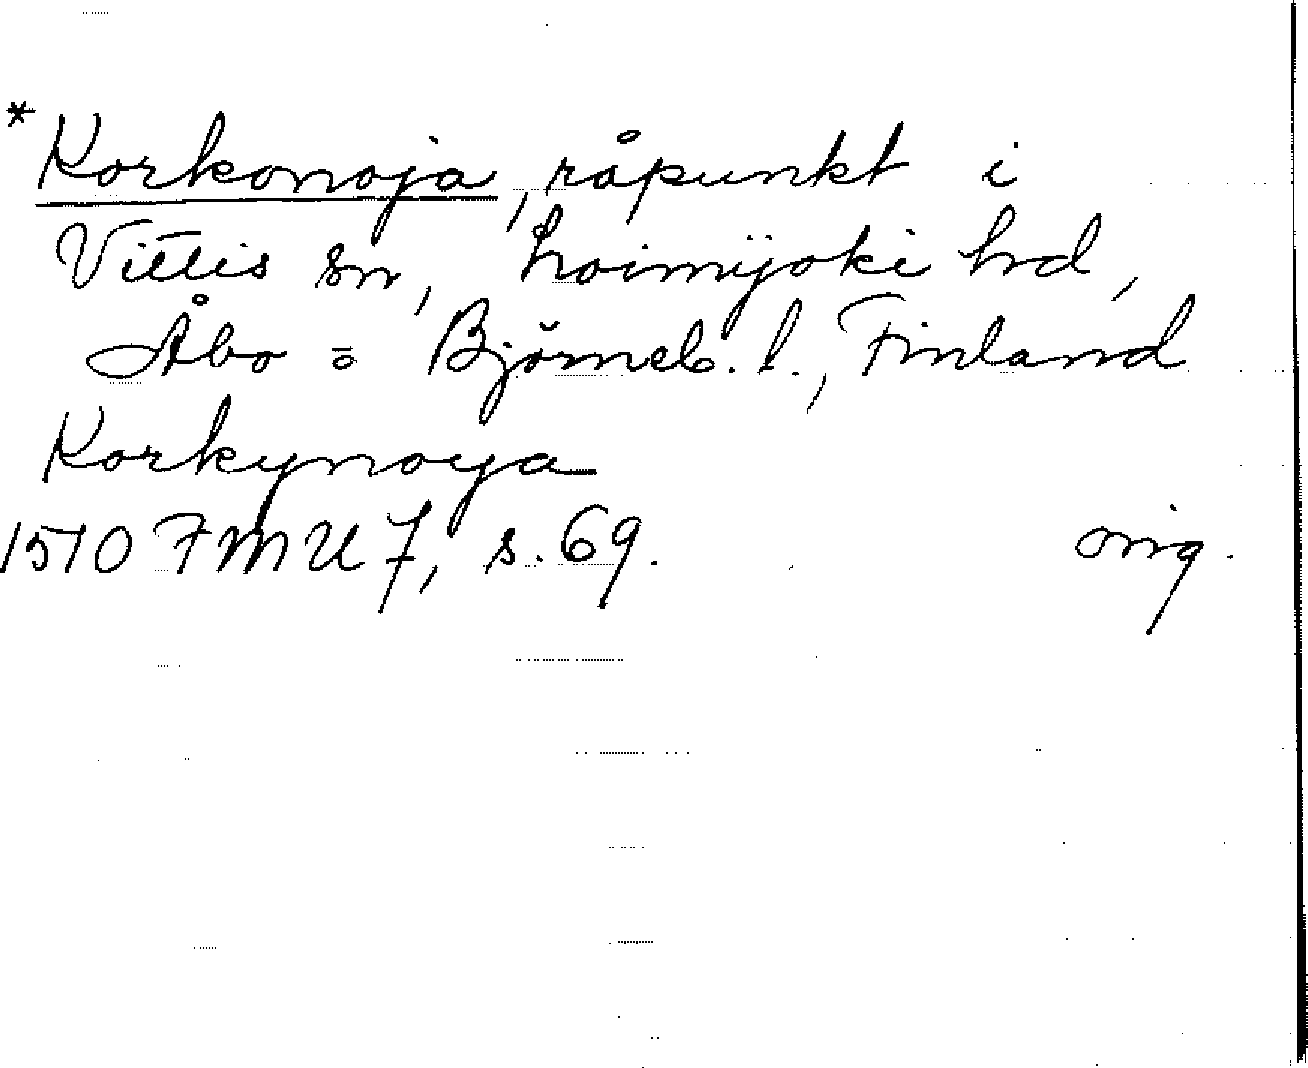 *Korkonoja, råpunkt i
Vittis sn, Loimijoki hd,
Åbo = Björneb. l., Finland
Korkynoya
1510 FMU 7, s. 69. orig.